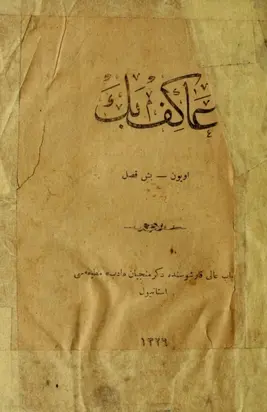 عاكف بك
اويون — بش فصل
باب عالى قارشوسنده دكرمنجيان مطبعه‌سى
استانبول
١٣٢٦